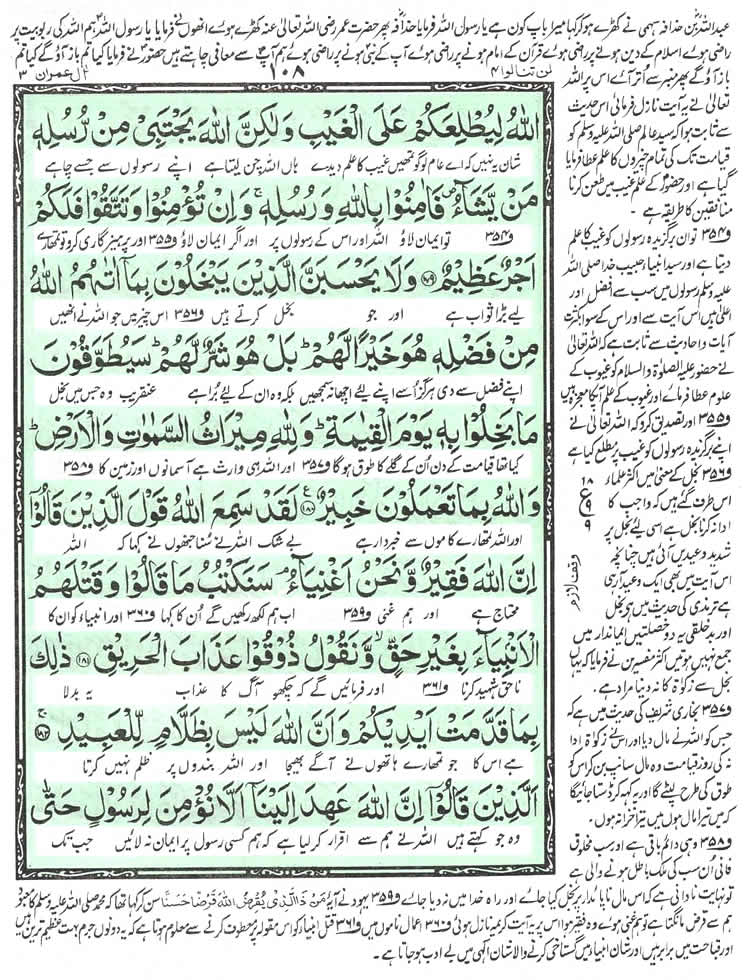 عبداللہ بن حذافہ سہمی نے کھڑے ہو کر کہا میرا باپ کون ہے یا رسول اللہ فرمایا حذافہ پھر حضرت عمر رضی اللہ تعالیٰ عنہ کھڑے ہوئے انھوں نے فرمایا یا رسول اللہ ہم اللہ کی ربوبیت پر
راضی ہوئے اسلام کے دین ہونے پر راضی ہوئے قرآن کے امام ہونے پر راضی ہوئے آپ کے نبی ہونے پر راضی ہوئے ہم آپ سے معافی چاہتے ہیں حضور نے فرمایا کیا تم باز آؤ گے کیا تم
لن تنالوا ۴
۱۰۸
اٰل عمران ۳
باز آؤ گے پھر منبر سے اتر آئے اس پر اللہ
تعالیٰ نے یہ آیت نازل فرمائی اس حدیث
سے ثابت ہوا کہ سید عالم صلی اللہ علیہ وسلم کو
قیامت تک کی تمام چیزوں کا علم عطا فرمایا
گیا ہے اور حضور کے علم غیب میں طعن کرنا
منافقین کا طریقہ ہے ۔
و۳۵۴ تو ان برگزیدہ رسولوں کو غیب کا علم
دیتا ہے اور سید انبیا حبیب خدا صلی اللہ
علیہ وسلم رسولوں میں سب سے افضل اور
اعلیٰ ہیں اس آیت سے اور اس کے سوا بکثرت
آیات و احادیث سے ثابت ہے کہ اللہ تعالیٰ
نے حضور علیہ الصلوٰۃ والسلام کو غیوب کے
علوم عطا فرمائے اور غیوب کے علم آپ کا معجزہ ہیں
و۳۵۵ اور تصدیق کرو کہ اللہ تعالیٰ نے
اپنے برگزیدہ رسولوں کو غیب پر مطلع کیا ہے
و۳۵۶ بخل کے معنی میں اکثر علماء
اس طرف گئے ہیں کہ واجب کا
ادا نہ کرنا بخل ہے اسی لئے بخل پر
شدید وعیدیں آئی ہیں چنانچہ
اس آیت میں بھی ایک وعید آرہی
ہے ترمذی کی حدیث میں ہے بخل
اور بدخلقی یہ دو خصلتیں ایماندار میں
جمع نہیں ہوتیں اکثر مفسرین نے فرمایا کہ یہاں
بخل سے زکوٰۃ کا نہ دینا مراد ہے ۔
و۳۵۷ بخاری شریف کی حدیث میں ہے کہ
جس کو اللہ نے مال دیا اور اس نے زکوٰۃ ادا
نہ کی روز قیامت وہ مال سانپ بن کر اس کو
طوق کی طرح لپٹے گا اور یہ کہہ کر ڈستا جائے گا
کہ میں تیرا مال ہوں میں تیرا خزانہ ہوں ۔
و۳۵۸ وہی دائم باقی ہے اور سب مخلوق
فانی اُن سب کی ملک باطل ہونے والی ہے
اللّٰهُ لِيُطْلِعَكُمْ عَلَى الْغَيْبِ وَلٰكِنَّ اللّٰهَ يَجْتَبِيْ مِنْ رُّسُلِهٖ
شان یہ نہیں کہ اے عام لوگو تمھیں غیب کا علم دیدے ہاں اللہ چن لیتا ہے اپنے رسولوں سے جسے چاہے
مَنْ يَّشَآءُ ۪ فَاٰمِنُوْا بِاللّٰهِ وَرُسُلِهٖ ۚ وَاِنْ تُؤْمِنُوْا وَتَتَّقُوْا فَلَكُمْ
و۳۵۴ تو ایمان لاؤ اللہ اور اس کے رسولوں پر اور اگر ایمان لاؤ و۳۵۵ اور پرہیزگاری کرو تو تمھارے
اَجْرٌ عَظِيْمٌ ﴿۱۷۹﴾ وَلَا يَحْسَبَنَّ الَّذِيْنَ يَبْخَلُوْنَ بِمَآ اٰتٰىهُمُ اللّٰهُ
لیے بڑا ثواب ہے اور جو بخل کرتے ہیں و۳۵۶ اس چیز میں جو اللہ نے انھیں
مِنْ فَضْلِهٖ هُوَ خَيْرًا لَّهُمْ ؕ بَلْ هُوَ شَرٌّ لَّهُمْ ؕ سَيُطَوَّقُوْنَ
اپنے فضل سے دی ہرگز اُسے اپنے لیے اچھا نہ سمجھیں بلکہ وہ ان کے لیے بُرا ہے عنقریب وہ جس میں بخل
مَا بَخِلُوْا بِهٖ يَوْمَ الْقِيٰمَةِ ؕ وَلِلّٰهِ مِيْرَاثُ السَّمٰوٰتِ وَالْاَرْضِ ؕ
کیا تھا قیامت کے دن اُن کے گلے کا طوق ہوگا و۳۵۷ اور اللہ ہی وارث ہے آسمانوں اور زمین کا و۳۵۸
وَاللّٰهُ بِمَا تَعْمَلُوْنَ خَبِيْرٌ ﴿۱۸۰﴾ لَقَدْ سَمِعَ اللّٰهُ قَوْلَ الَّذِيْنَ قَالُوْۤا
اور اللہ تمھارے کاموں سے خبردار ہے بے شک اللہ نے سُنا جنھوں نے کہا کہ اللہ
اِنَّ اللّٰهَ فَقِيْرٌ وَّنَحْنُ اَغْنِيَآءُ ۘ سَنَكْتُبُ مَا قَالُوْا وَقَتْلَهُمُ
محتاج ہے اور ہم غنی و۳۵۹ اب ہم لکھ رکھیں گے اُن کا کہا و۳۶۰ اور انبیاء کو ان کا
الْاَنْۢبِيَآءَ بِغَيْرِ حَقٍّ ۙ وَّنَقُوْلُ ذُوْقُوْا عَذَابَ الْحَرِيْقِ ﴿۱۸۱﴾ ذٰلِكَ
ناحق شہید کرنا و۳۶۱ اور فرمائیں گے کہ چکھو آگ کا عذاب یہ بدلا
بِمَا قَدَّمَتْ اَيْدِيْكُمْ وَاَنَّ اللّٰهَ لَيْسَ بِظَلَّامٍ لِّلْعَبِيْدِ ﴿۱۸۲﴾
ہے اس کا جو تمھارے ہاتھوں نے آگے بھیجا اور اللہ بندوں پر ظلم نہیں کرتا
اَلَّذِيْنَ قَالُوْۤا اِنَّ اللّٰهَ عَهِدَ اِلَيْنَاۤ اَلَّا نُؤْمِنَ لِرَسُوْلٍ حَتّٰى
وہ جو کہتے ہیں اللہ نے ہم سے اقرار کر لیا ہے کہ ہم کسی رسول پر ایمان نہ لائیں جب تک
۱۸
ع
۹
۹
وقف لازم
تو نہایت نادانی ہے کہ اس مال ناپائدار پر بخل کیا جائے اور راہ خدا میں نہ دیا جائے و۳۵۹ یہود نے آیۃ مَنْ ذَا الَّذِيْ يُقْرِضُ اللّٰهَ قَرْضًا حَسَنًا سن کر کہا تھا کہ محمد صلی اللہ علیہ وسلم کا معبود
ہم سے قرض مانگتا ہے تو ہم غنی ہوئے وہ فقیر ہوا اس پر یہ آیت کریمہ نازل ہوئی و۳۶۰ اعمال ناموں میں و۳۶۱ قتل انبیا کو اس مقولہ پر معطوف کرنے سے معلوم ہوتا ہے کہ یہ دونوں جرم بہت عظیم ترین ہیں
اور قباحت میں برابر ہیں اور شان انبیا میں گستاخی کرنے والا شان الٰہی میں بے ادب ہو جاتا ہے ۔